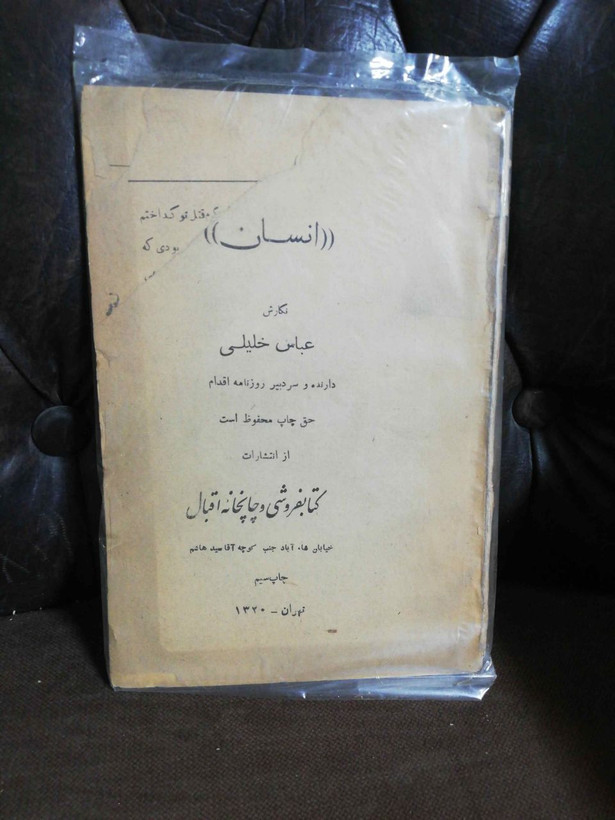 قتل تو گداختم
بودی که
((انسان))
نگارش
عباس خلیلی
دارنده و سردبیر روزنامه اقدام
حق چاپ محفوظ است
از انتشارات
کتابفروشی و چاپخانه اقبال
خیابان شاه آباد جنب کوچه آقا سید هاشم
چاپ سیم
تهران - ۱۳۲۰